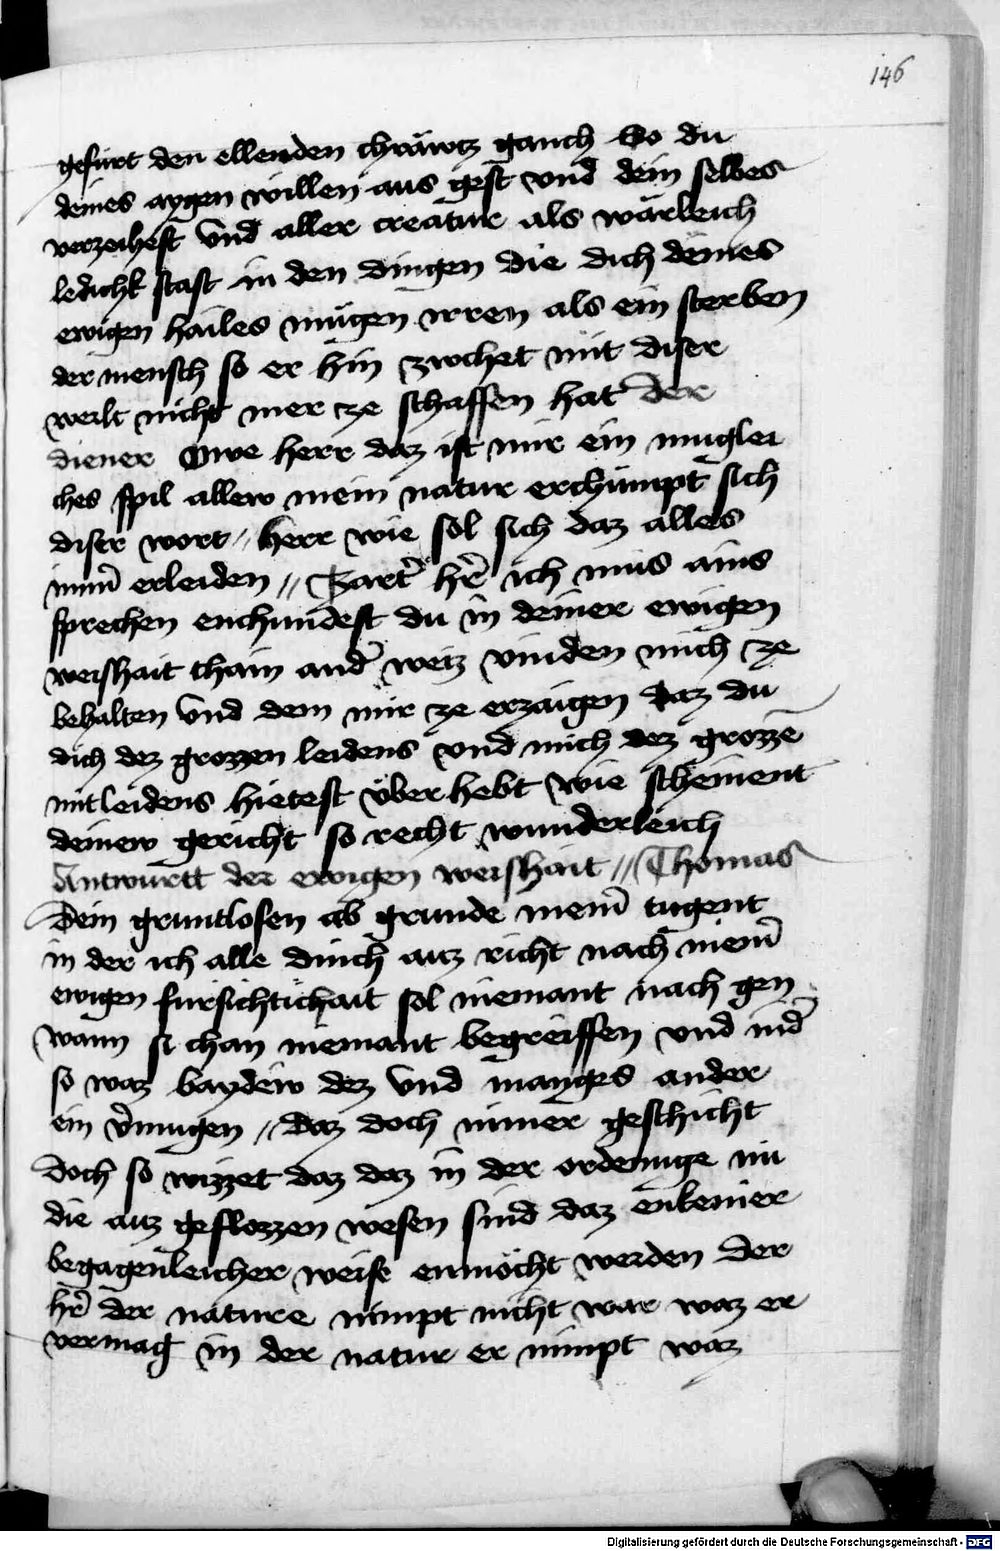 146
gefürt den ellenden chräwtz ganch So du
deines aygen willen aus gest vnd dein selbes
verzeihest vnd aller creatur als wärleich
ledichk stast in den dingen die dich deines
ewigen hailes mügen irren als ein sterben
der mensch so er hin zwchet mit diser
werlt nicht mer ze schaffen hat Der
diener Owe herr daz ist mir ein muglei
ches spil allew mein natur erchümpt sich
diser wort // herr wie sol sich daz alles
imm̄ erleiden // Zart̄ hr̄ ich mus ains
sprechen enchundest du in deiner ewigen
weishait chain and̄ weiz vinden mich ze
behalten vnd dem mir ze erzaigen daz du
dich dez grozzen leidens vnd mich dez grozzē
mitleidens hietest überhebt wie scheinent
deinew gericht so recht wunderleich
Antwurtt der ewigen weishait // Thomas
Dem gruntlosen ab grunde mein̄ tugent
in der ich alle dinch auz richt nach mein̄
ewigen fürsichtichait sol niemant nach gen
wann si chan niemant begreiffen vnd ind̄
so waz baydew dez vnd manges ander
ein v̄mugen // daz doch nimer geschicht
doch so wizzet daz daz in der ordenuge nu
die auz geflozzen wesen sind daz enkeiner
begagenleicher weise enmöcht werden Der
hr̄ der nature nimpt nicht war waz er
vermag in der natur er nimpt waz
Digitalisierung gefördert durch die Deutsche Forschungsgemeinschaft - DFG